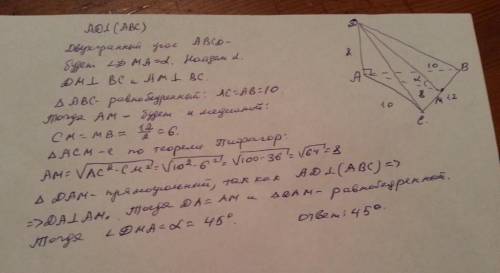 AD⊥(ABC)
Двухгранный угол ABCD-
будет ∠DMA=α. Найдем α.
DM⊥BC и AM⊥BC.
ΔABC-равнобедренный: AC=AB=10.
Тогда AM- будет и медианой:
CM=MB=12/2=6.
ΔACM-с по теореме Пифагор:
AM=√AC²-CM²=√10²-6²=√100-36=√64=8
ΔDAM-прямоуголный, так как AD⊥(ABC)=>
=>DA⊥AM. Тогда DA=AM и ΔDAM-равнобедренной.
Тогда ∠DMA=α=45°.
ответ: 45°.
D
8
A
10
B
α
8
M
12
10
C